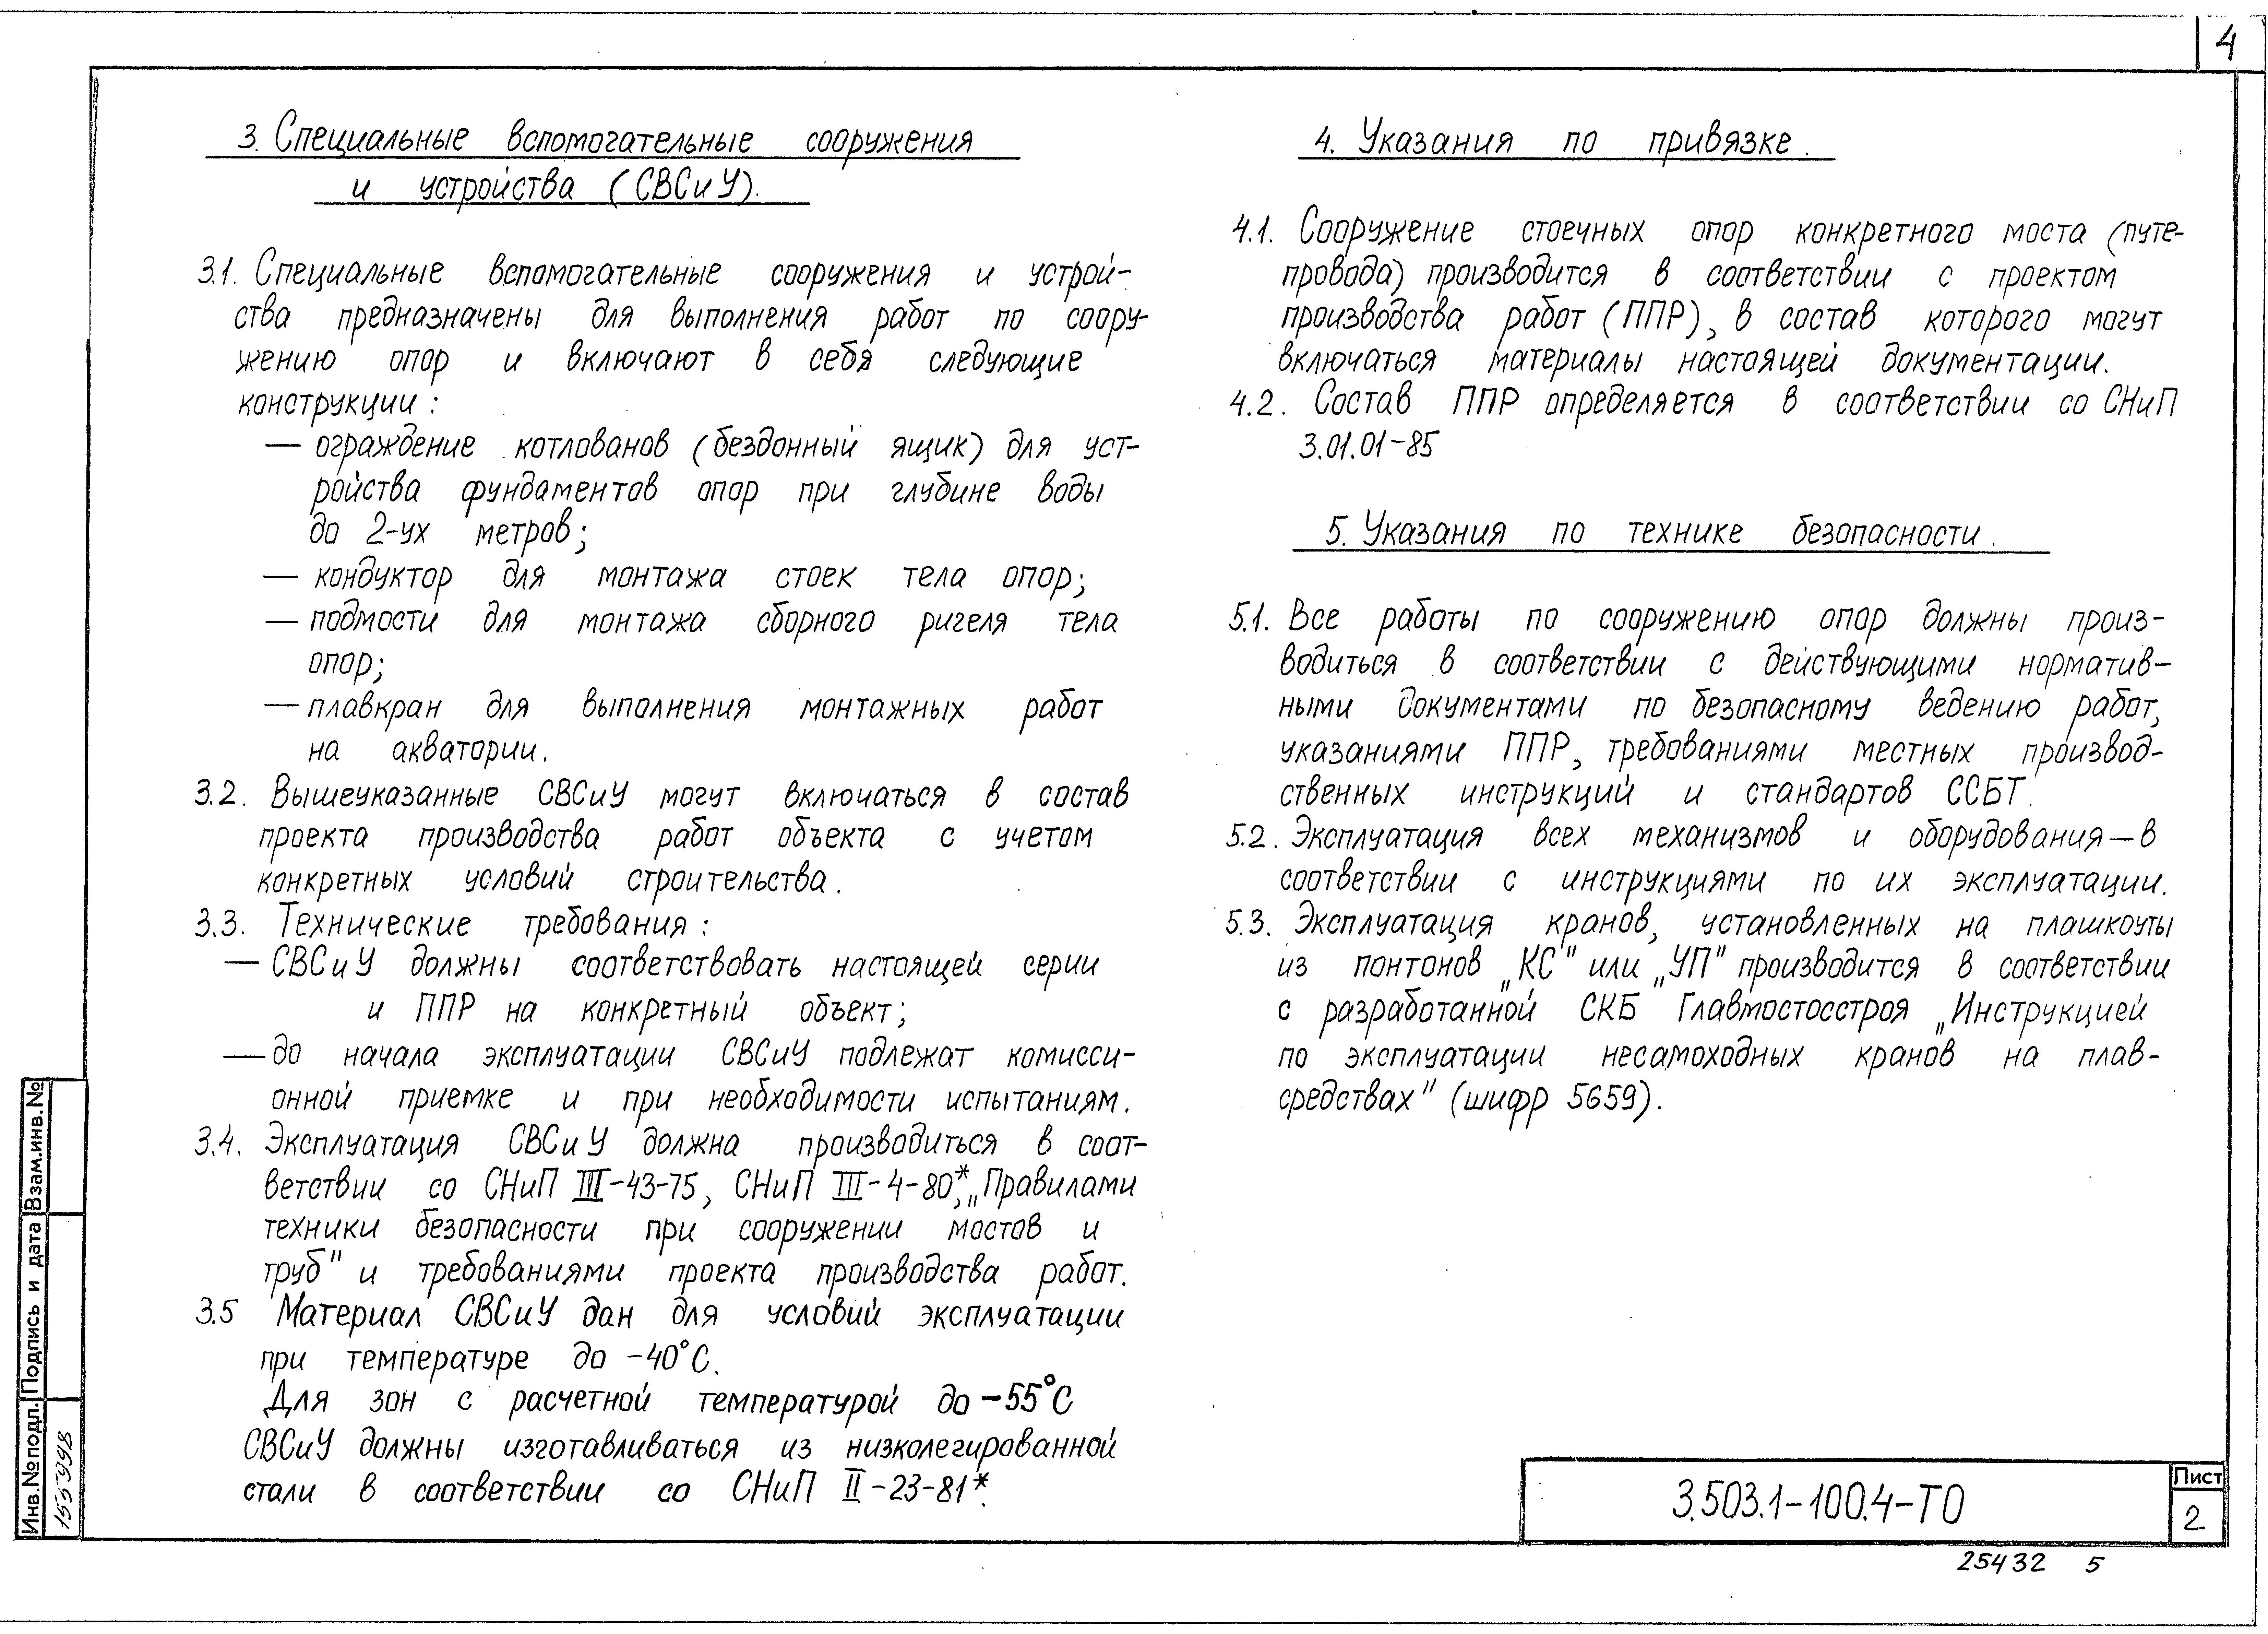 4
3. Специальные вспомогательные сооружения
и устройства (СВСиУ).
3.1. Специальные вспомогательные сооружения и устрой-
ства предназначены для выполнения работ по соору-
жению опор и включают в себя следующие
конструкции:
— ограждение котлованов (бездонный ящик) для уст-
ройства фундаментов опор при глубине воды
до 2-ух метров;
— кондуктор для монтажа стоек тела опор;
— подмости для монтажа сборного ригеля тела
опор;
— плавкран для выполнения монтажных работ
на акватории.
3.2. Вышеуказанные СВСиУ могут включаться в состав
проекта производства работ объекта с учетом
конкретных условий строительства.
3.3. Технические требования:
— СВСиУ должны соответствовать настоящей серии
и ППР на конкретный объект;
— до начала эксплуатации СВСиУ подлежат комисси-
онной приемке и при необходимости испытаниям.
3.4. Эксплуатация СВСиУ должна производиться в соот-
ветствии со СНиП III-43-75, СНиП III-4-80*, „Правилами
техники безопасности при сооружении мостов и
труб" и требованиями проекта производства работ.
3.5 Материал СВСиУ дан для условий эксплуатации
при температуре до -40°С.
Для зон с расчетной температурой до -55°С
СВСиУ должны изготавливаться из низколегированной
стали в соответствии со СНиП II-23-81*.
4. Указания по привязке.
4.1. Сооружение стоечных опор конкретного моста (путе-
провода) производится в соответствии с проектом
производства работ (ППР), в состав которого могут
включаться материалы настоящей документации.
4.2. Состав ППР определяется в соответствии со СНиП
3.01.01-85
5. Указания по технике безопасности.
5.1. Все работы по сооружению опор должны произ-
водиться в соответствии с действующими норматив-
ными документами по безопасному ведению работ,
указаниями ППР, требованиями местных производ-
ственных инструкций и стандартов ССБТ.
5.2. Эксплуатация всех механизмов и оборудования — в
соответствии с инструкциями по их эксплуатации.
5.3. Эксплуатация кранов, установленных на плашкоуты
из понтонов „КС" или „УП" производится в соответствии
с разработанной СКБ Главмостосстроя „Инструкцией
по эксплуатации несамоходных кранов на плав-
средствах" (шифр 5659).
Взам.инв.№
Подпись и дата
Инв.№подл.
155998
3.503.1-100.4-ТО
Лист
2
25432 5